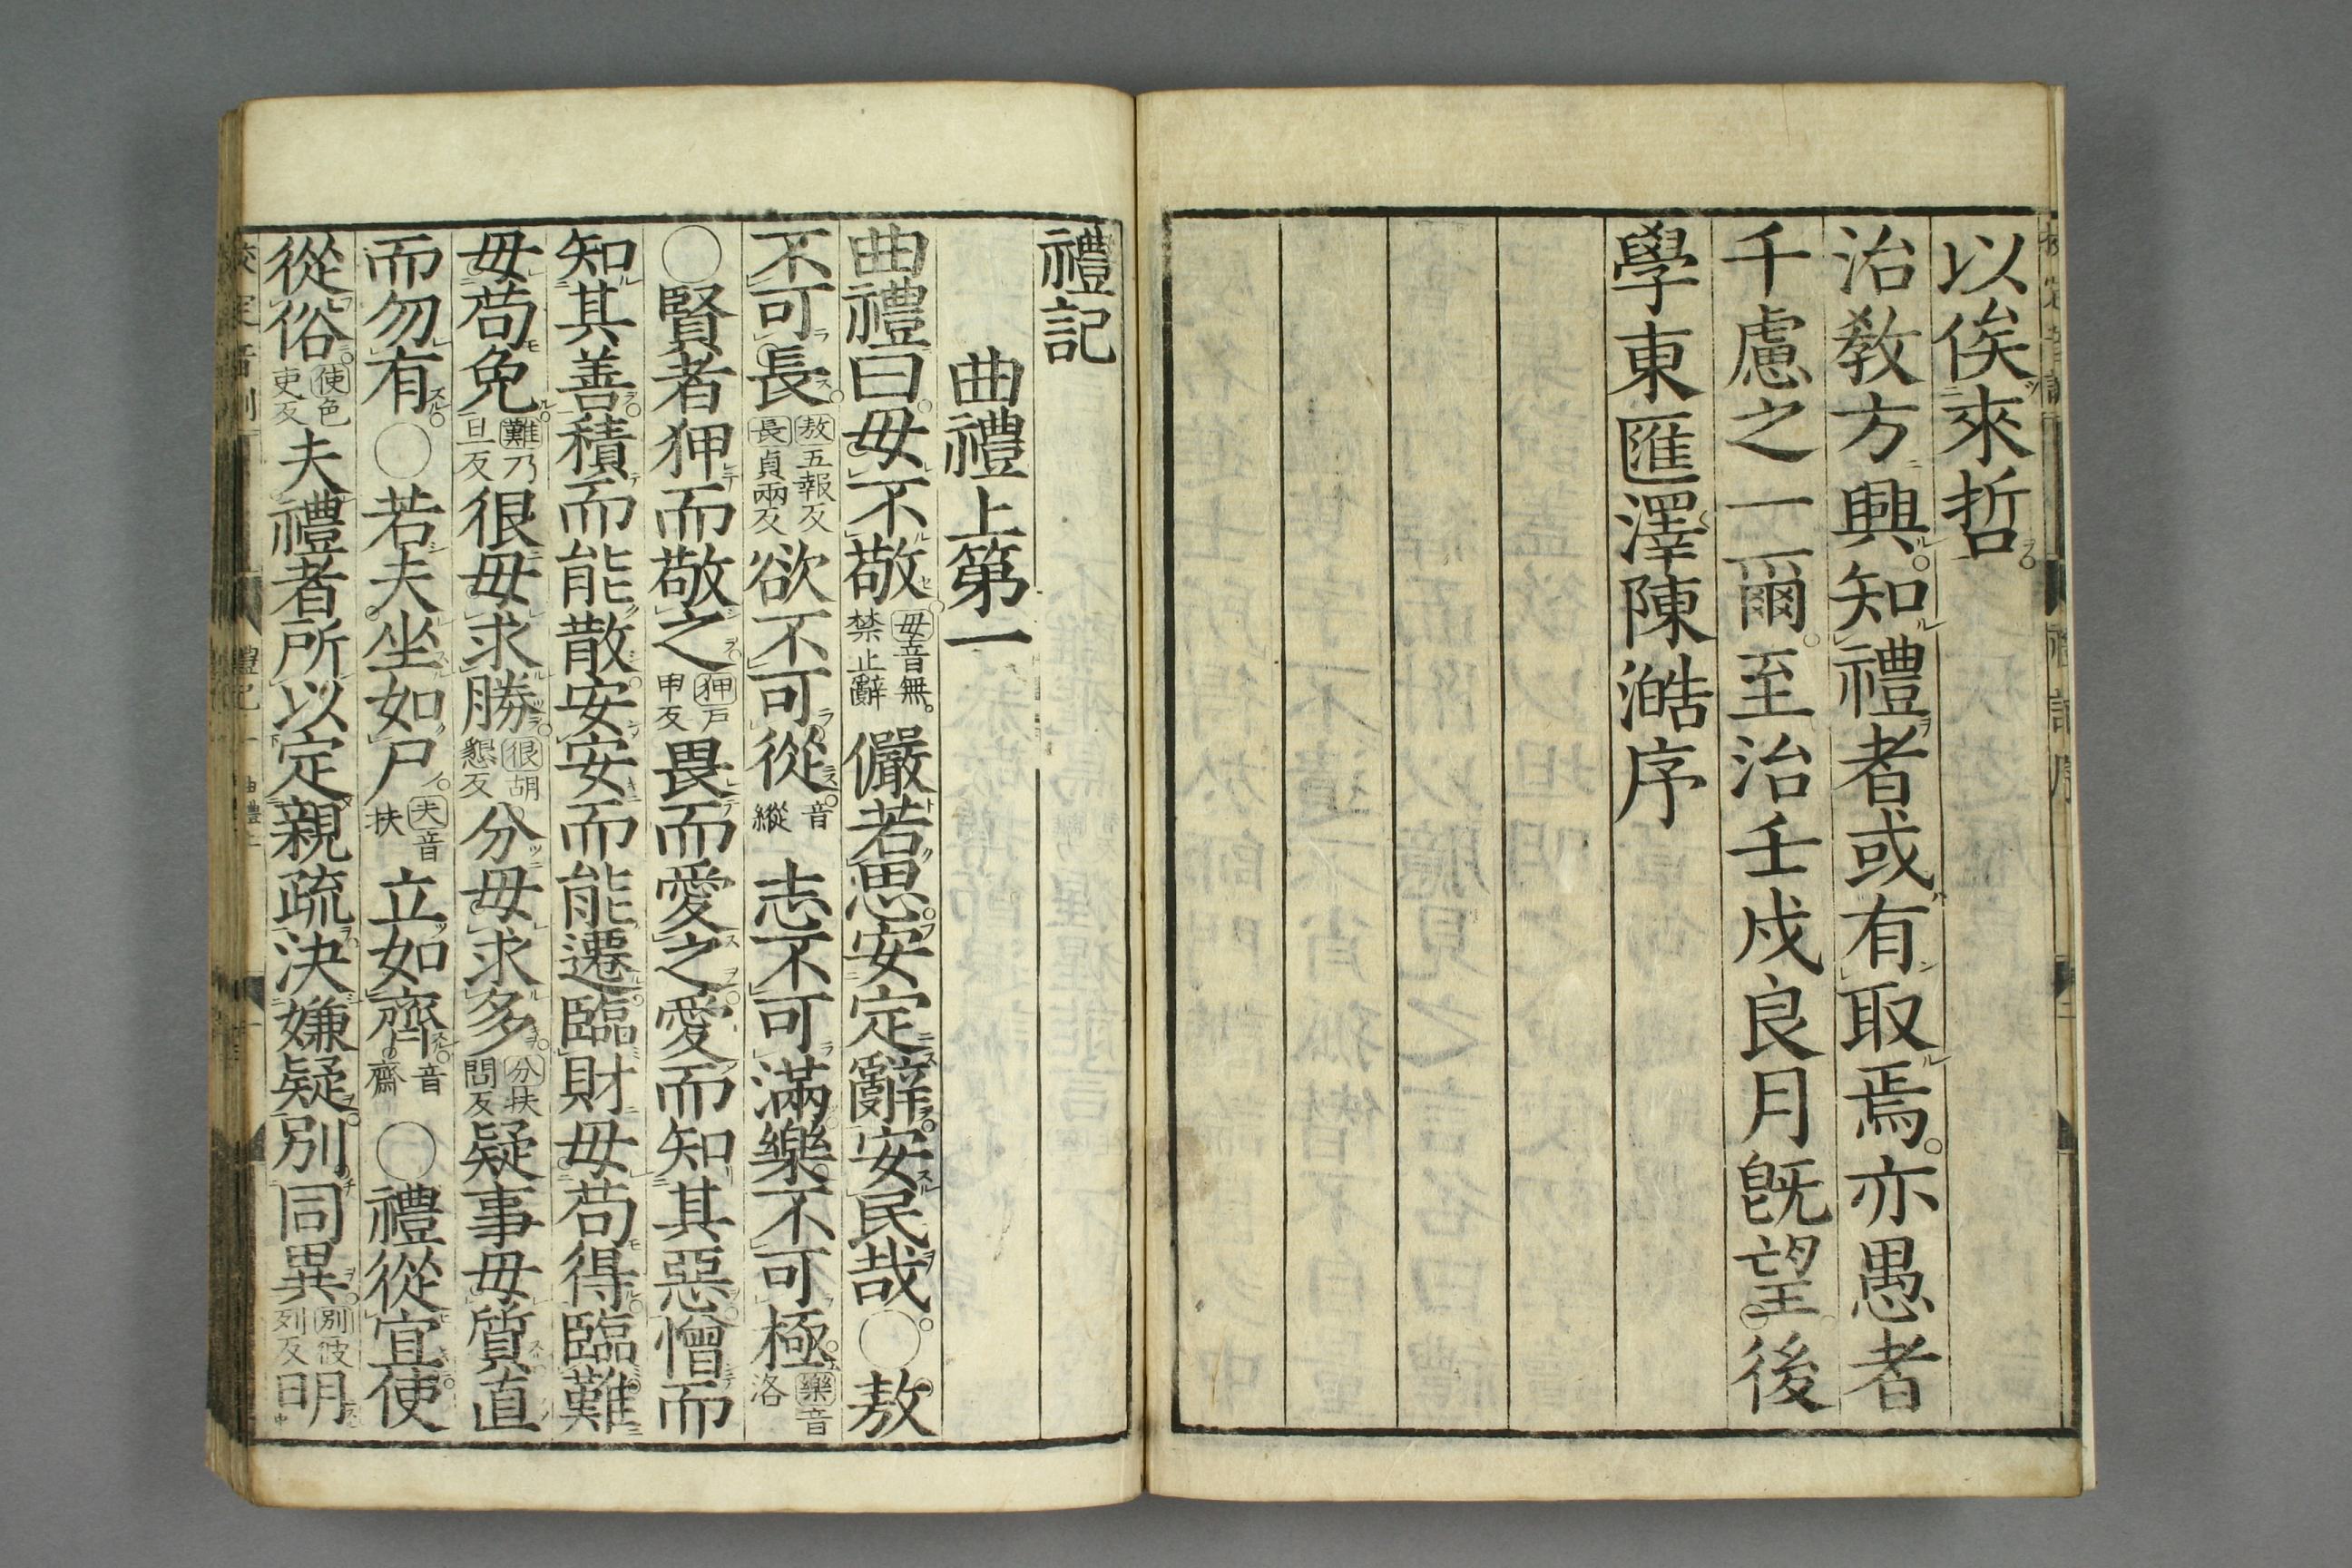 以俟來哲
治教方興知禮者或有取焉亦愚者
千慮之一爾至治壬戌良月旣望後
學東匯澤陳澔序
禮記
曲禮上第一
曲禮曰毋不敬毋音無禁止辭儼若思安定辭安民哉○敖
不可長敖五報反長貞兩反欲不可從音縱志不可滿樂不可極樂音洛
○賢者狎而敬之狎戶甲反畏而愛之愛而知其惡憎而
知其善積而能散安安而能遷臨財毋苟得臨難
毋苟免難乃旦反很毋求勝很胡懇反分毋求多分扶問反疑事毋質直
而勿有○若夫坐如尸夫音扶立如齊音齋○禮從宜使
從俗使色吏反夫禮者所以定親疏決嫌疑別同異別彼列反明